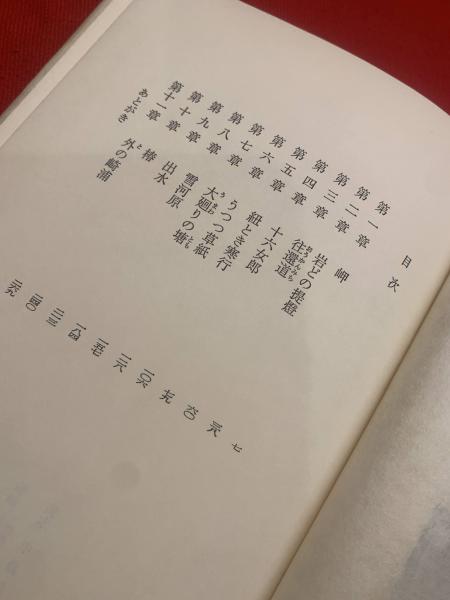 目次
第一章 岬 七
第二章 岩どの提燈 三八
第三章 往還道 六〇
第四章 十六女郎 七九
第五章 紐とき寒行 一〇六
第六章 うつつ草紙 一二六
第七章 大廻りの塘 一五七
第八章 雪河原 一八四
第九章 出水 二一三
第十章 椿 二四〇
第十一章 外の崎浦 二六九
あとがき